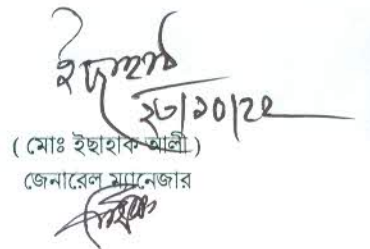 ইছাহাক
২৩/১০/২২
( মোঃ ইছাহাক আলী )
জেনারেল ম্যানেজার